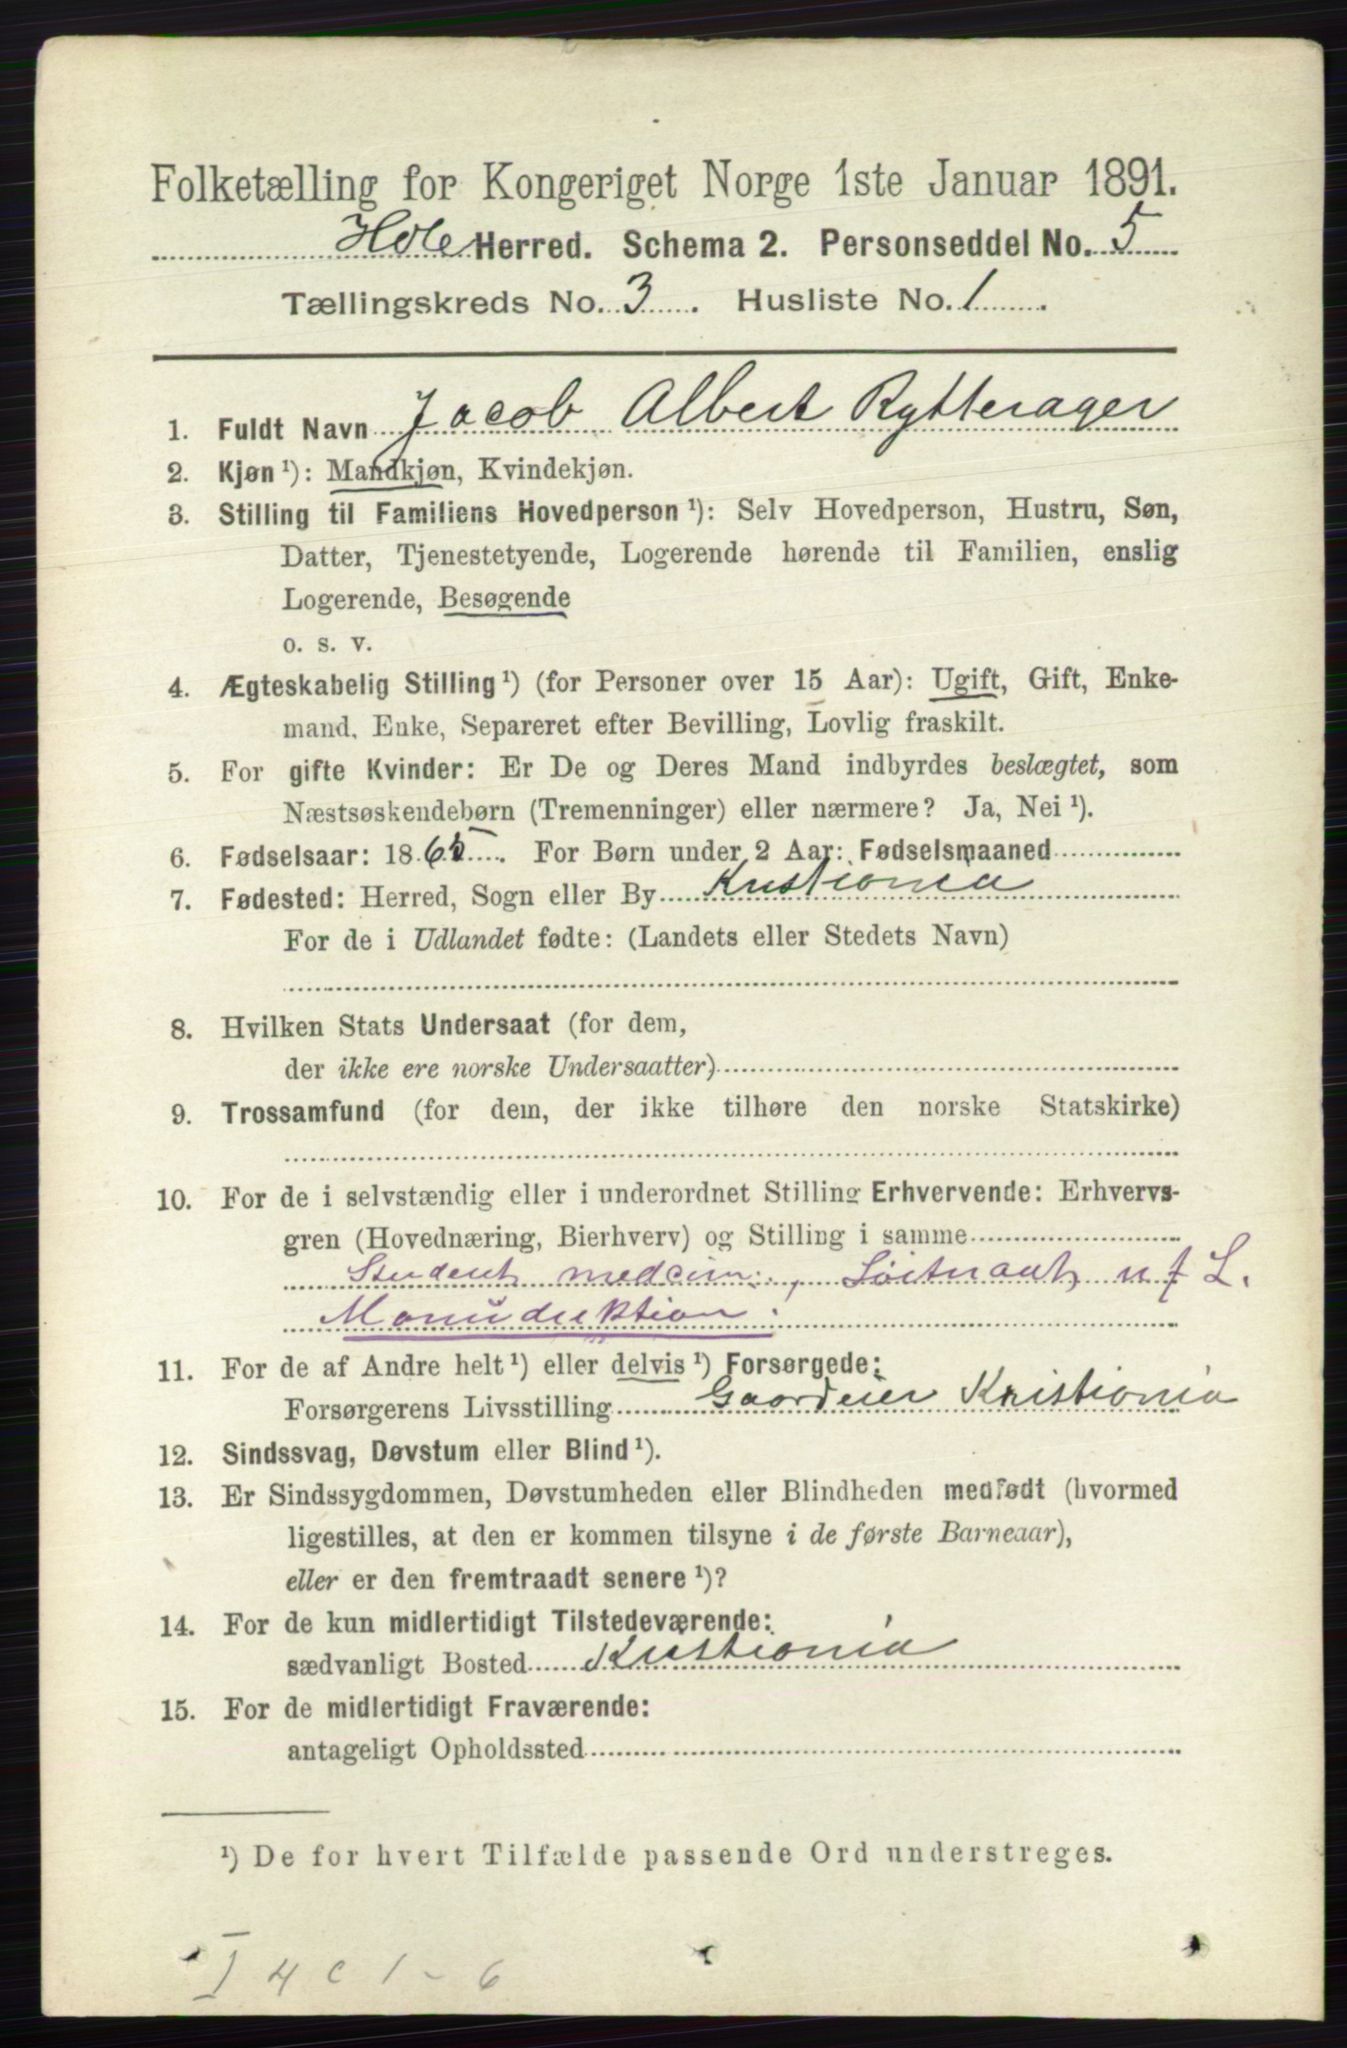 Folketælling for Kongeriget Norge 1ste Januar 1891.
Hole Herred. Schema 2. Personseddel No. 5
Tællingskreds No. 3. Husliste No. 1.
1. Fuldt Navn Jacob Albert Rytterager
2. Kjøn ¹): Mandkjøn, Kvindekjøn.
3. Stilling til Familiens Hovedperson ¹): Selv Hovedperson, Hustru, Søn,
Datter, Tjenestetyende, Logerende hørende til Familien, enslig
Logerende, Besøgende
o. s. v.
4. Ægteskabelig Stilling ¹) (for Personer over 15 Aar): Ugift, Gift, Enke-
mand, Enke, Separeret efter Bevilling, Lovlig fraskilt.
5. For gifte Kvinder: Er De og Deres Mand indbyrdes beslægtet, som
Næstsøskendebørn (Tremenninger) eller nærmere? Ja, Nei ¹).
6. Fødselsaar: 1865. For Børn under 2 Aar: Fødselsmaaned
7. Fødested: Herred, Sogn eller By Kristiania
For de i Udlandet fødte: (Landets eller Stedets Navn)
8. Hvilken Stats Undersaat (for dem,
der ikke ere norske Undersaatter)
9. Trossamfund (for dem, der ikke tilhøre den norske Statskirke)
10. For de i selvstændig eller i underordnet Stilling Erhvervende: Erhvervs-
gren (Hovednæring, Bierhverv) og Stilling i samme
Student medcin., Löitnant, u f L.
Manuduktion.
11. For de af Andre helt ¹) eller delvis ¹) Forsørgede:
Forsørgerens Livsstilling Gaardeier Kristiania
12. Sindssvag, Døvstum eller Blind ¹).
13. Er Sindssygdommen, Døvstumheden eller Blindheden medfødt (hvormed
ligestilles, at den er kommen tilsyne i de første Barneaar),
eller er den fremtraadt senere ¹)?
14. For de kun midlertidigt Tilstedeværende:
sædvanligt Bosted Kristiania
15. For de midlertidigt Fraværende:
antageligt Opholdssted
¹) De for hvert Tilfælde passende Ord understreges.
I 4 c 1 - 6